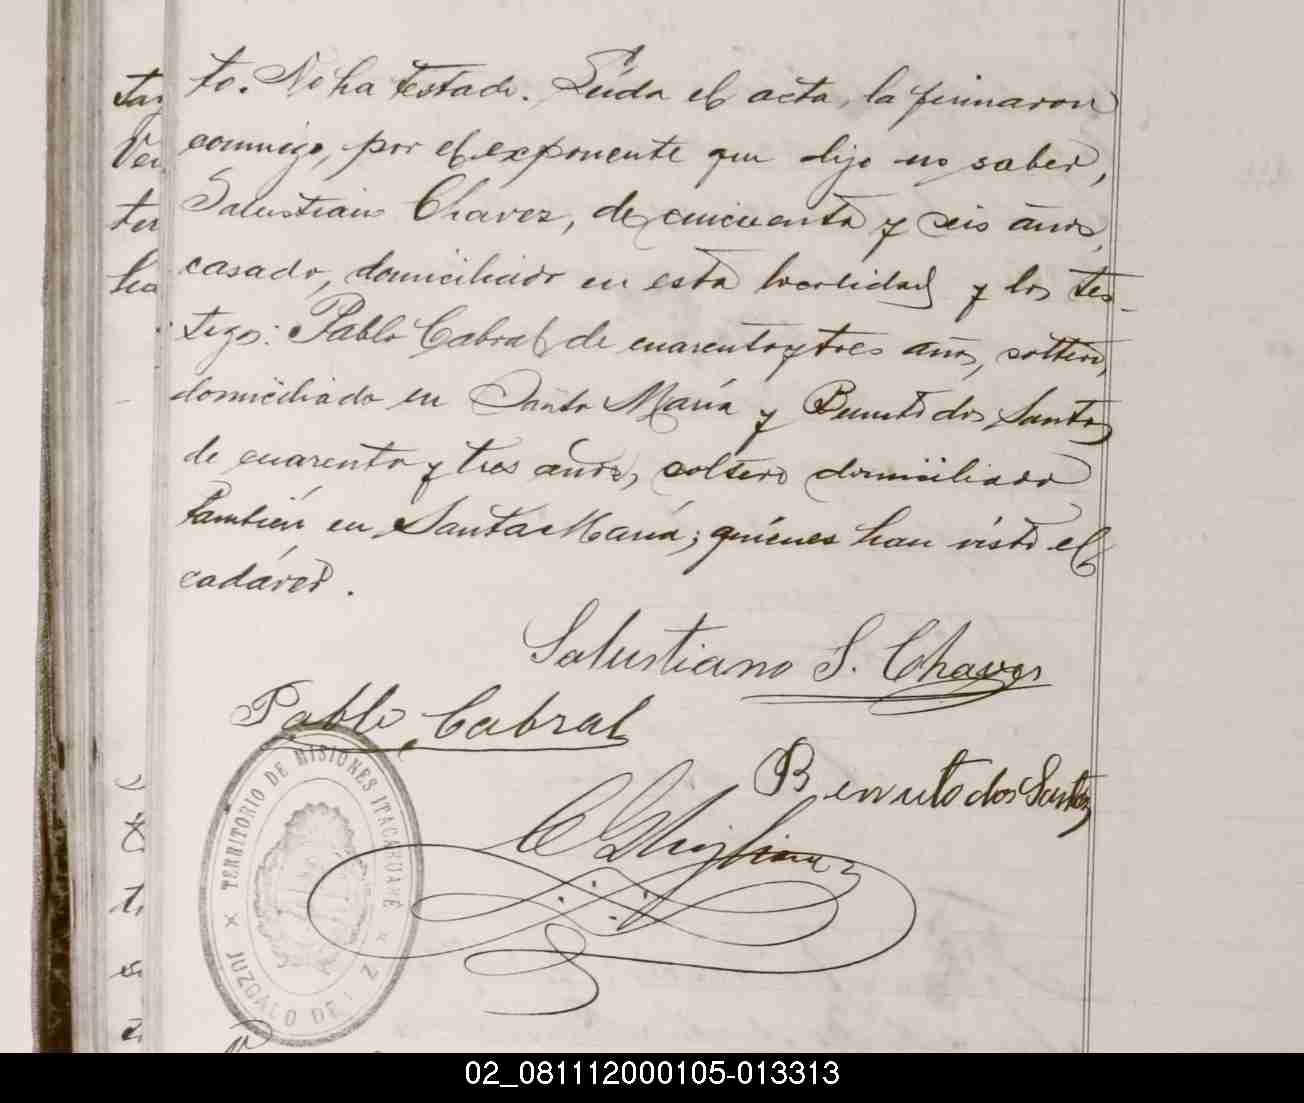 to. No ha testado. Leída el acta, la firmaron
conmigo, por el exponente que dijo no saber,
Salustiano Chavez, de cincuenta y seis años,
casado, domiciliado en esta localidad y los tes-
tigos: Pablo Cabral de cuarenta y tres años, soltero,
domiciliado en Santa María y Benuto dos Santos
de cuarenta y tres años, soltero domiciliado
también en Santa María; quiénes han visto el
cadáver.
Salustiano S. Chaves
Pablo Cabral
Benuto dos Santos
TERRITORIO DE MISIONES ITACARUARÉ
JUZGADO DE
02_081112000105-013313